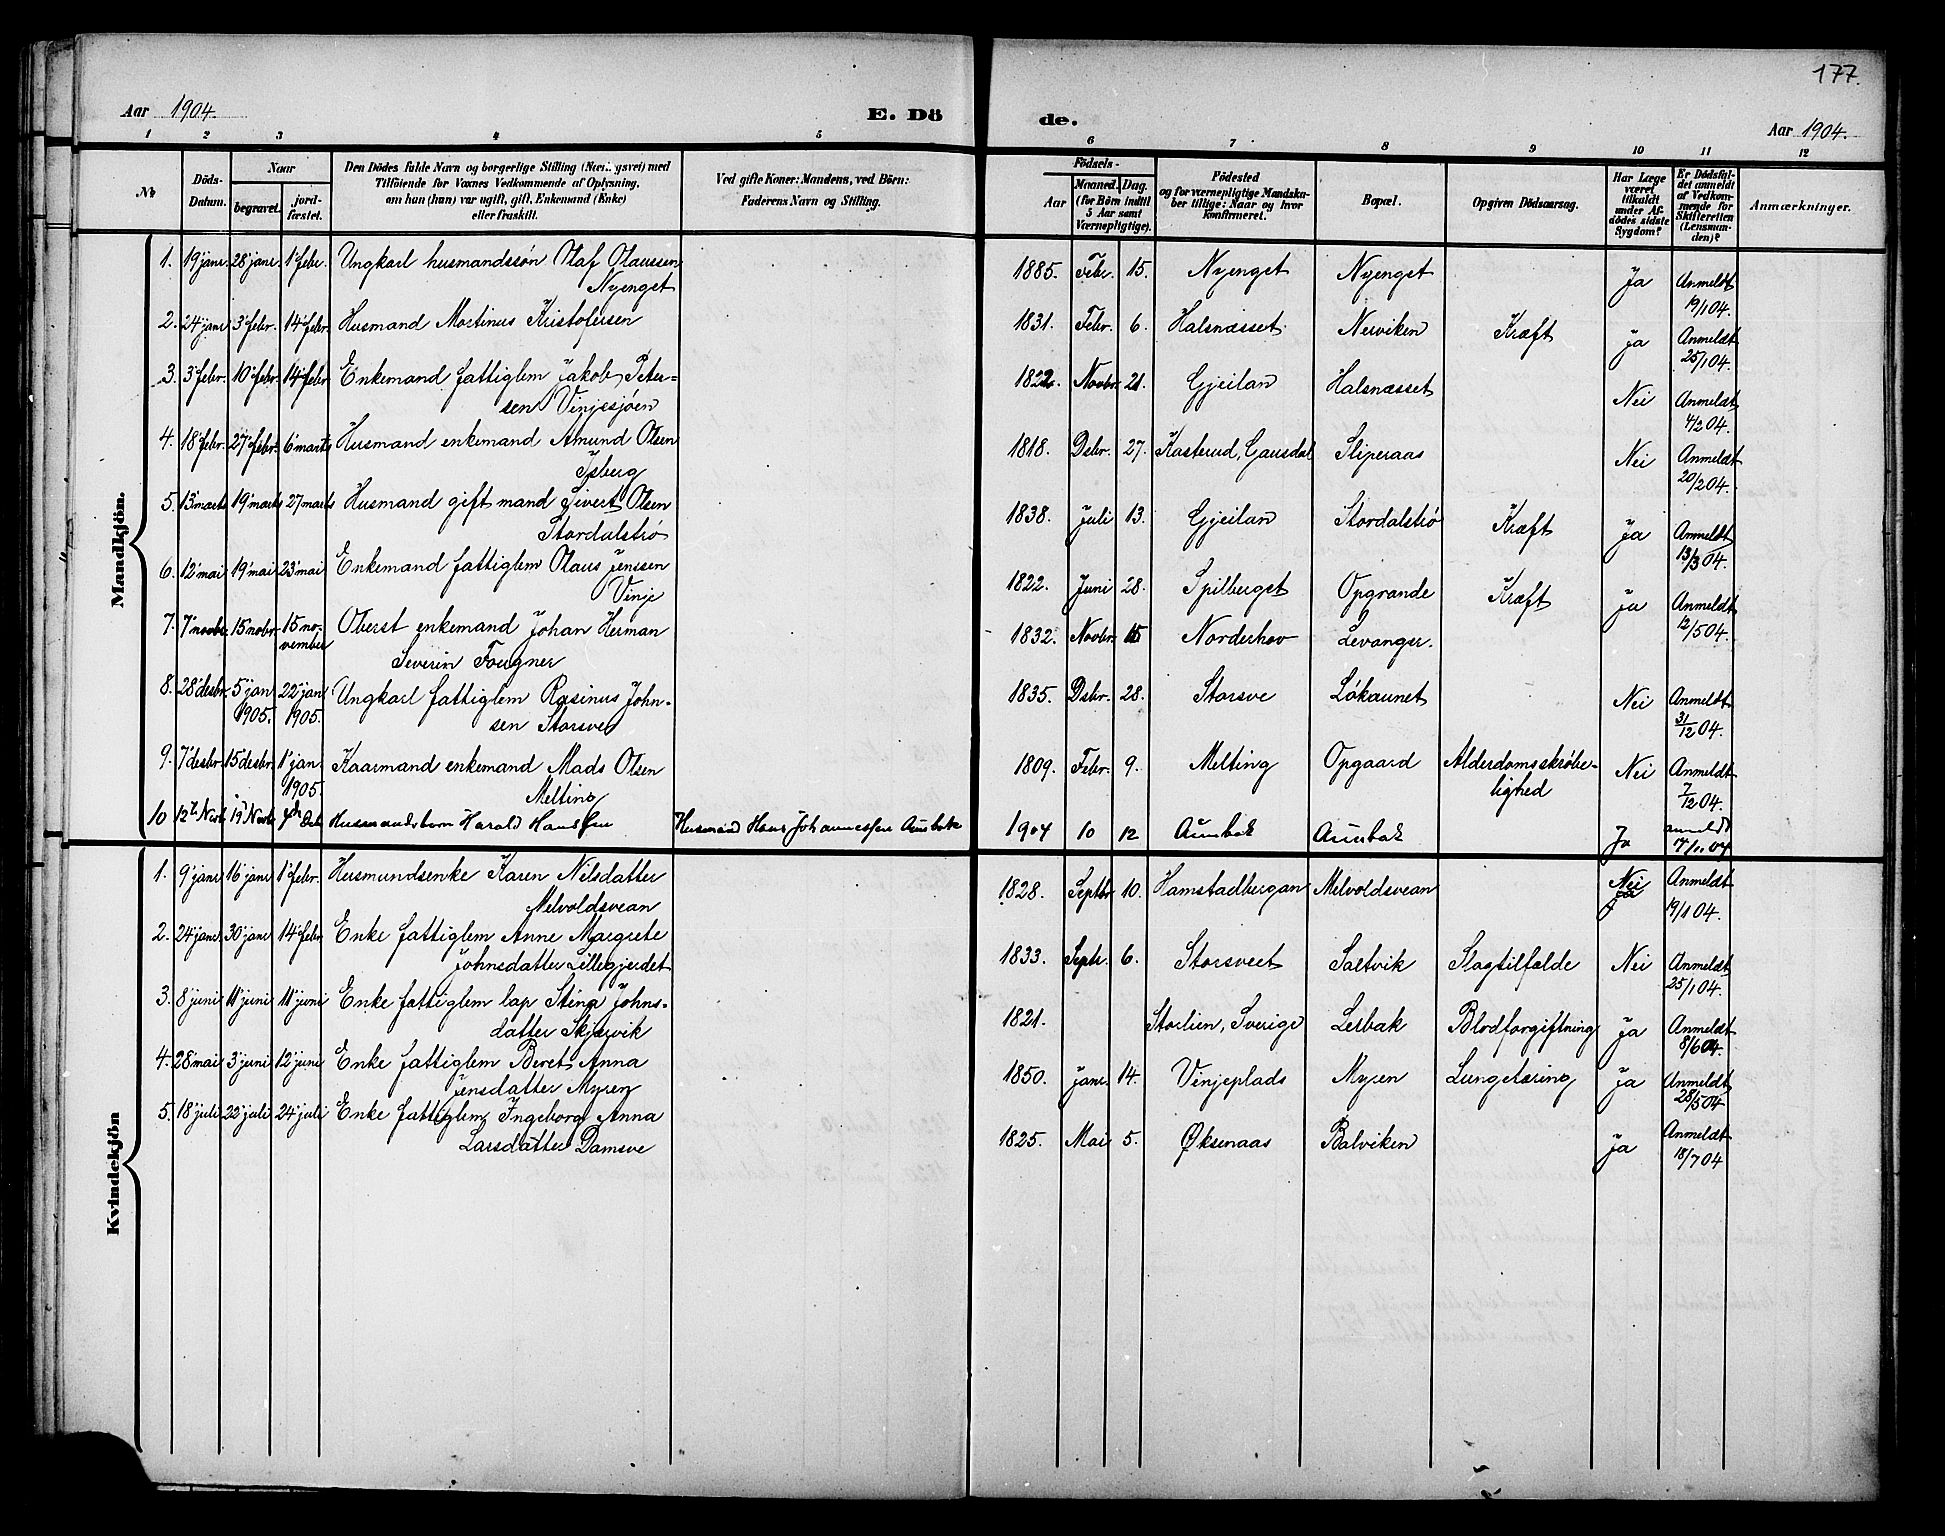 177.
Aar 1904. E. Dö de. Aar 1904.
1 2 3 4 5 6 7 8 9 10 11 12
№ Döds-Datum. Naar begravet. jordfæstet. Den Dödes fulde Navn og borgerlige Stilling (Næringsvei) med Tilföiende for Voxnes Vedkommende af Oplysning, om hun (hun) var ugift, gift, Enkemand (Enke) eller fraskilt. Ved gifte Koner: Mandens, ved Börn: Faderens Navn og Stilling. Födsels- Aar Maaned. Dag. (for Börn indtil 5 Aar samt Værnepligtige). Födested og for værnepligtige Mandskaber tillige: Naar og hvor konfirmeret. Bopæl. Opgiven Dödsaarsag. Har Læge været tilkaldt under Afdödes sidste Sygdom? Er Dödsfaldet anmeldt af Vedkommende for Skifteretten (Lensmanden)? Anmærkninger.
Mandkjön.
1. 19 janr. 28 janr. 1 febr. Ungkarl husmandssön Olaf Olaussen Nyenget 1885. Febr. 15. Nyenget Nyenget Ja Anmeldt 19/1 04.
2. 24 janr. 3 febr. 14 febr. Husmand Martinus Kristofersen 1831. Febr. 6. Halsnæsset Nerviken Kræft Ja Anmeldt 25/1 04.
3. 3 febr. 10 febr. 14 febr. Enkemand fattiglem Jakob Petersen Vinjesjöen 1822. Novbr. 21. Gjeilan Halsnæsset Nei Anmeldt 4/2 04.
4. 18 febr. 27 febr. 6 marts Husmand enkemand Amund Olsen Isberg 1818. Dsbr. 27. Kasterud, Gausdal Sliperaas Nei Anmeldt 20/2 04.
5. 13 marts 19 marts 27 marts Husmand gift mand Sivert Olsen Stordalstrø 1838. Juli 13. Gjeilan Stordalstrø Kræft Ja Anmeldt 13/3 04.
6. 12 mai 19 mai 23 mai Enkemand fattiglem Olaus Jenssen Vinje 1822. Juni 28. Spilberget Opgrande Kræft Ja Anmeldt 12/5 04.
7. 7 novbr. 15 nobr. 15 november Oberst enkemand Johan Herman Severin Fougner 1832. Novbr. 15 Norderhov Levanger.
8. 28 desbr. 5 jan 1905. 22 jan 1905. Ungkarl fattiglem Rasinus Johnsen Storsve 1835. Dsbr. 28. Storsve Løkaunet Nei Anmeldt 31/12 04.
9. 7 desbr. 15 desbr. 1 jan. 1905. Kaarmand enkemand Mads Olsen Melting 1809. Febr. 9. Melting Opgaard Alderdomsskrøbelighed Nei Anmeldt 7/12 04.
10 12 Novb 19 Novb Husmandsbarn Harald Hansen Husmand Hans Johannessen Aunbak 1904 10 12 Aunbak Aunbak Ja anmeldt
Kvindekjön
1. 9 janr 16 janr 1 febr. Husmandsenke Karen Nilsdatter Melvoldsvean 1828. Septbr 10. Hamstadbergan Melvoldsvean Nei Anmeldt 19/1 04.
2. 24 janr. 30 janr 14 febr. Enke fattiglem Anne Margrete Johnsdatter Lillegjerdet 1833. Septr. 6. Storsveet Saltvik Slagtilfælde Nei Anmeldt 25/1 04.
3. 8 juni 11 juni 11 juni Enke fattiglem lap Stina Johnsdatter Skjærvik 1821. Storlien, Sverige Lerbak Blodforgiftning Ja Anmeldt 8/6 04.
4. 28 mai 3 juni 12 juni Enke fattiglem Beret Anna Jensdatter Myren 1850. Janr. 14. Vinjeplads Myren Lungetæring Ja Anmeldt 28/5 04
5. 18 juli 23 juli 24 juli Enke fattiglem Ingeborg Anna Larsdatter Damsve 1825. Mai 5. Øksenaas Balviken Ja Anmeldt 18/7 04